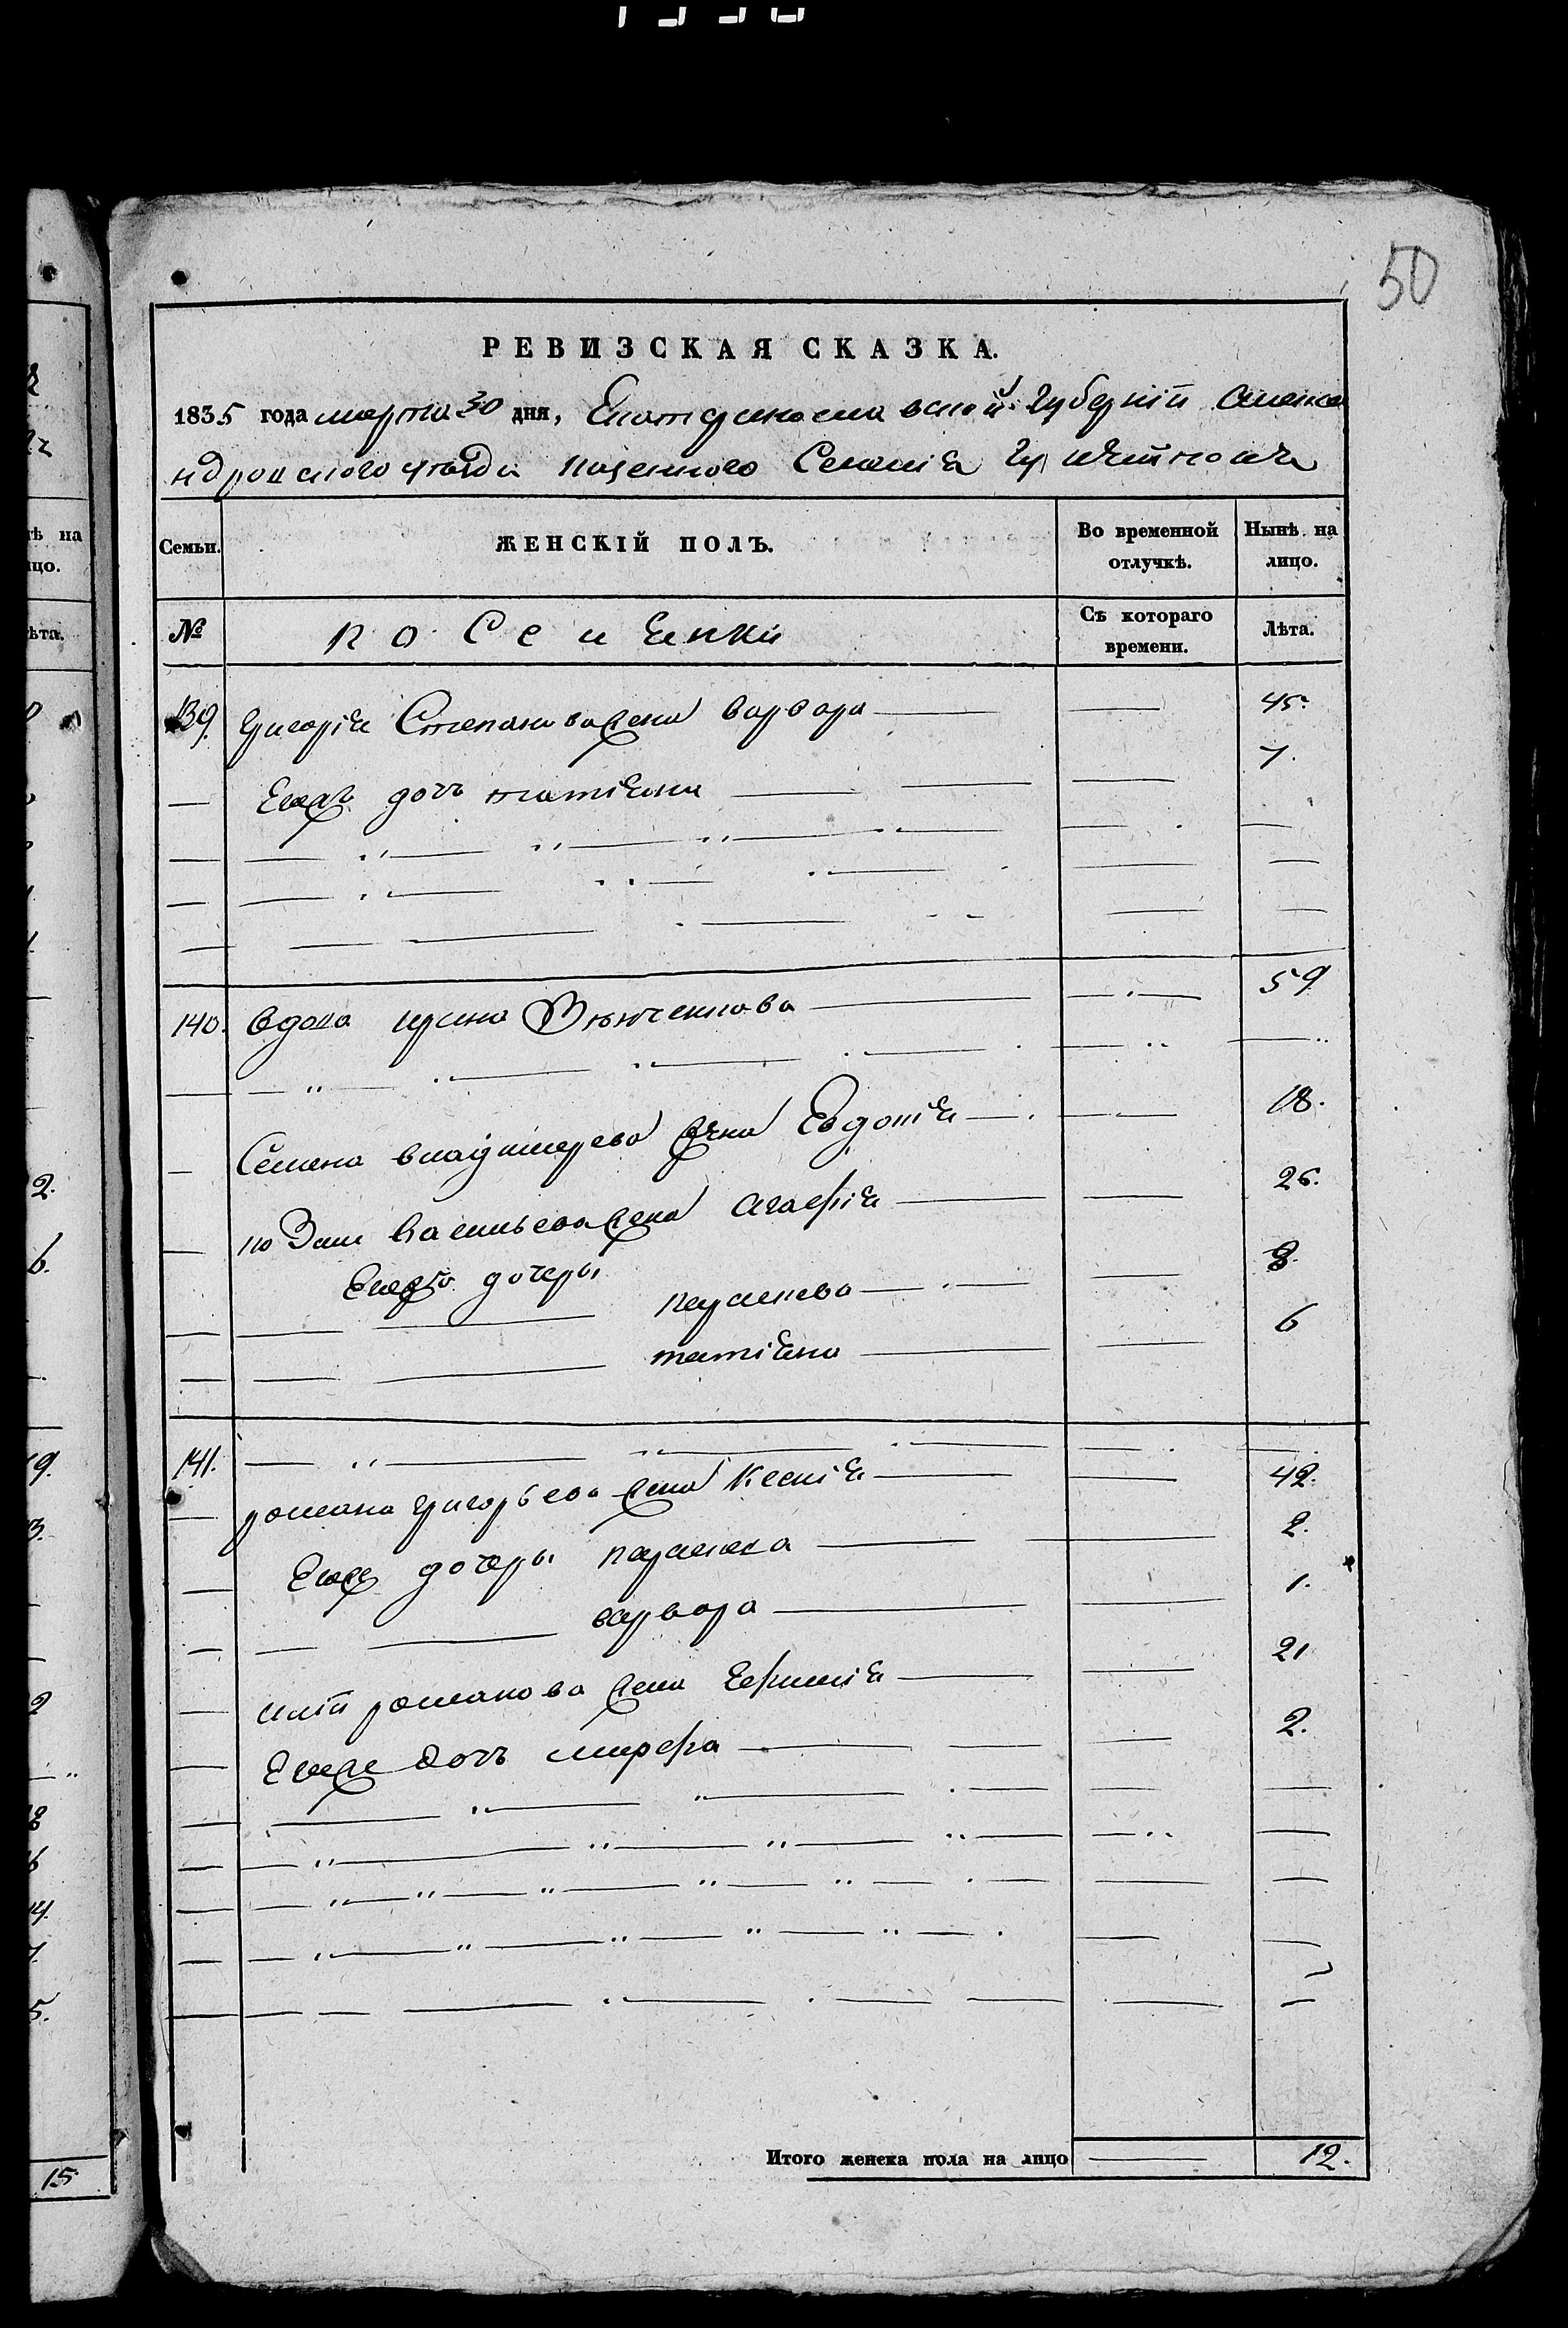 50
РЕВИЗСКАЯ СКАЗКА.
1835 года марта 30 дня, Екатериносла вской Губерніи Алекса
ндровского уезда казенного Селенія
Семьи. ЖЕНСКІЙ ПОЛЪ. Во временной отлучкѣ. Нынѣ на лицо.
№ поселянки Съ котораго времени. Лѣта.
139. Григорія Степанова жена варвара 45.
Егожъ дочь татіяна 7.
140. вдова ирина 59
Семена владимерева жена Евдокія 18.
васильева жена агафія 26.
Егожъ дочеры
параскева 8.
татіяна 6
141.
романа григорьева жена Ксенія 42.
Егоже дочеры параскева 2.
варвара 1.
романова жена Ефимія 21
Егоже дочь марфа 2.
Итого женска пола на лицо 12.
15